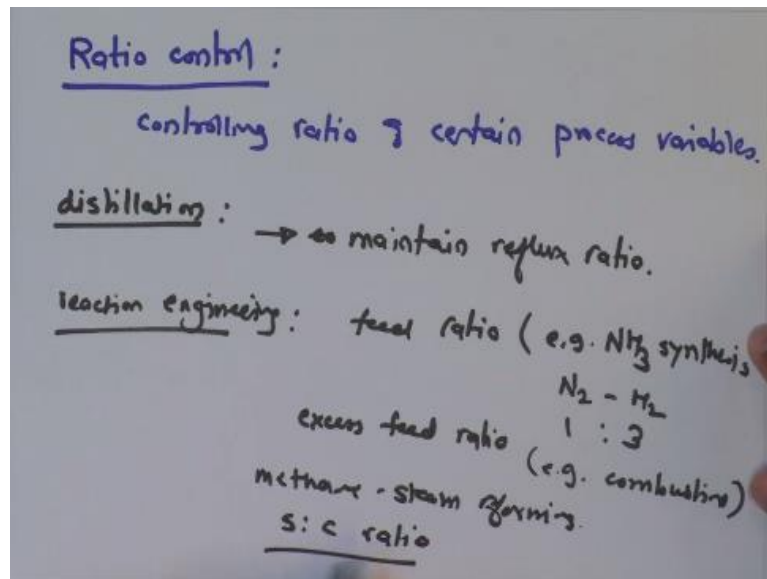 Ratio control :
controlling ratio of certain process variables.
distillation :
→ maintain reflux ratio.
reaction engineering : feed ratio ( e.g. NH3 synthesis
N2 - H2
1 : 3
excess feed ratio (e.g. combustion)
methane - steam reforming.
S : C ratio